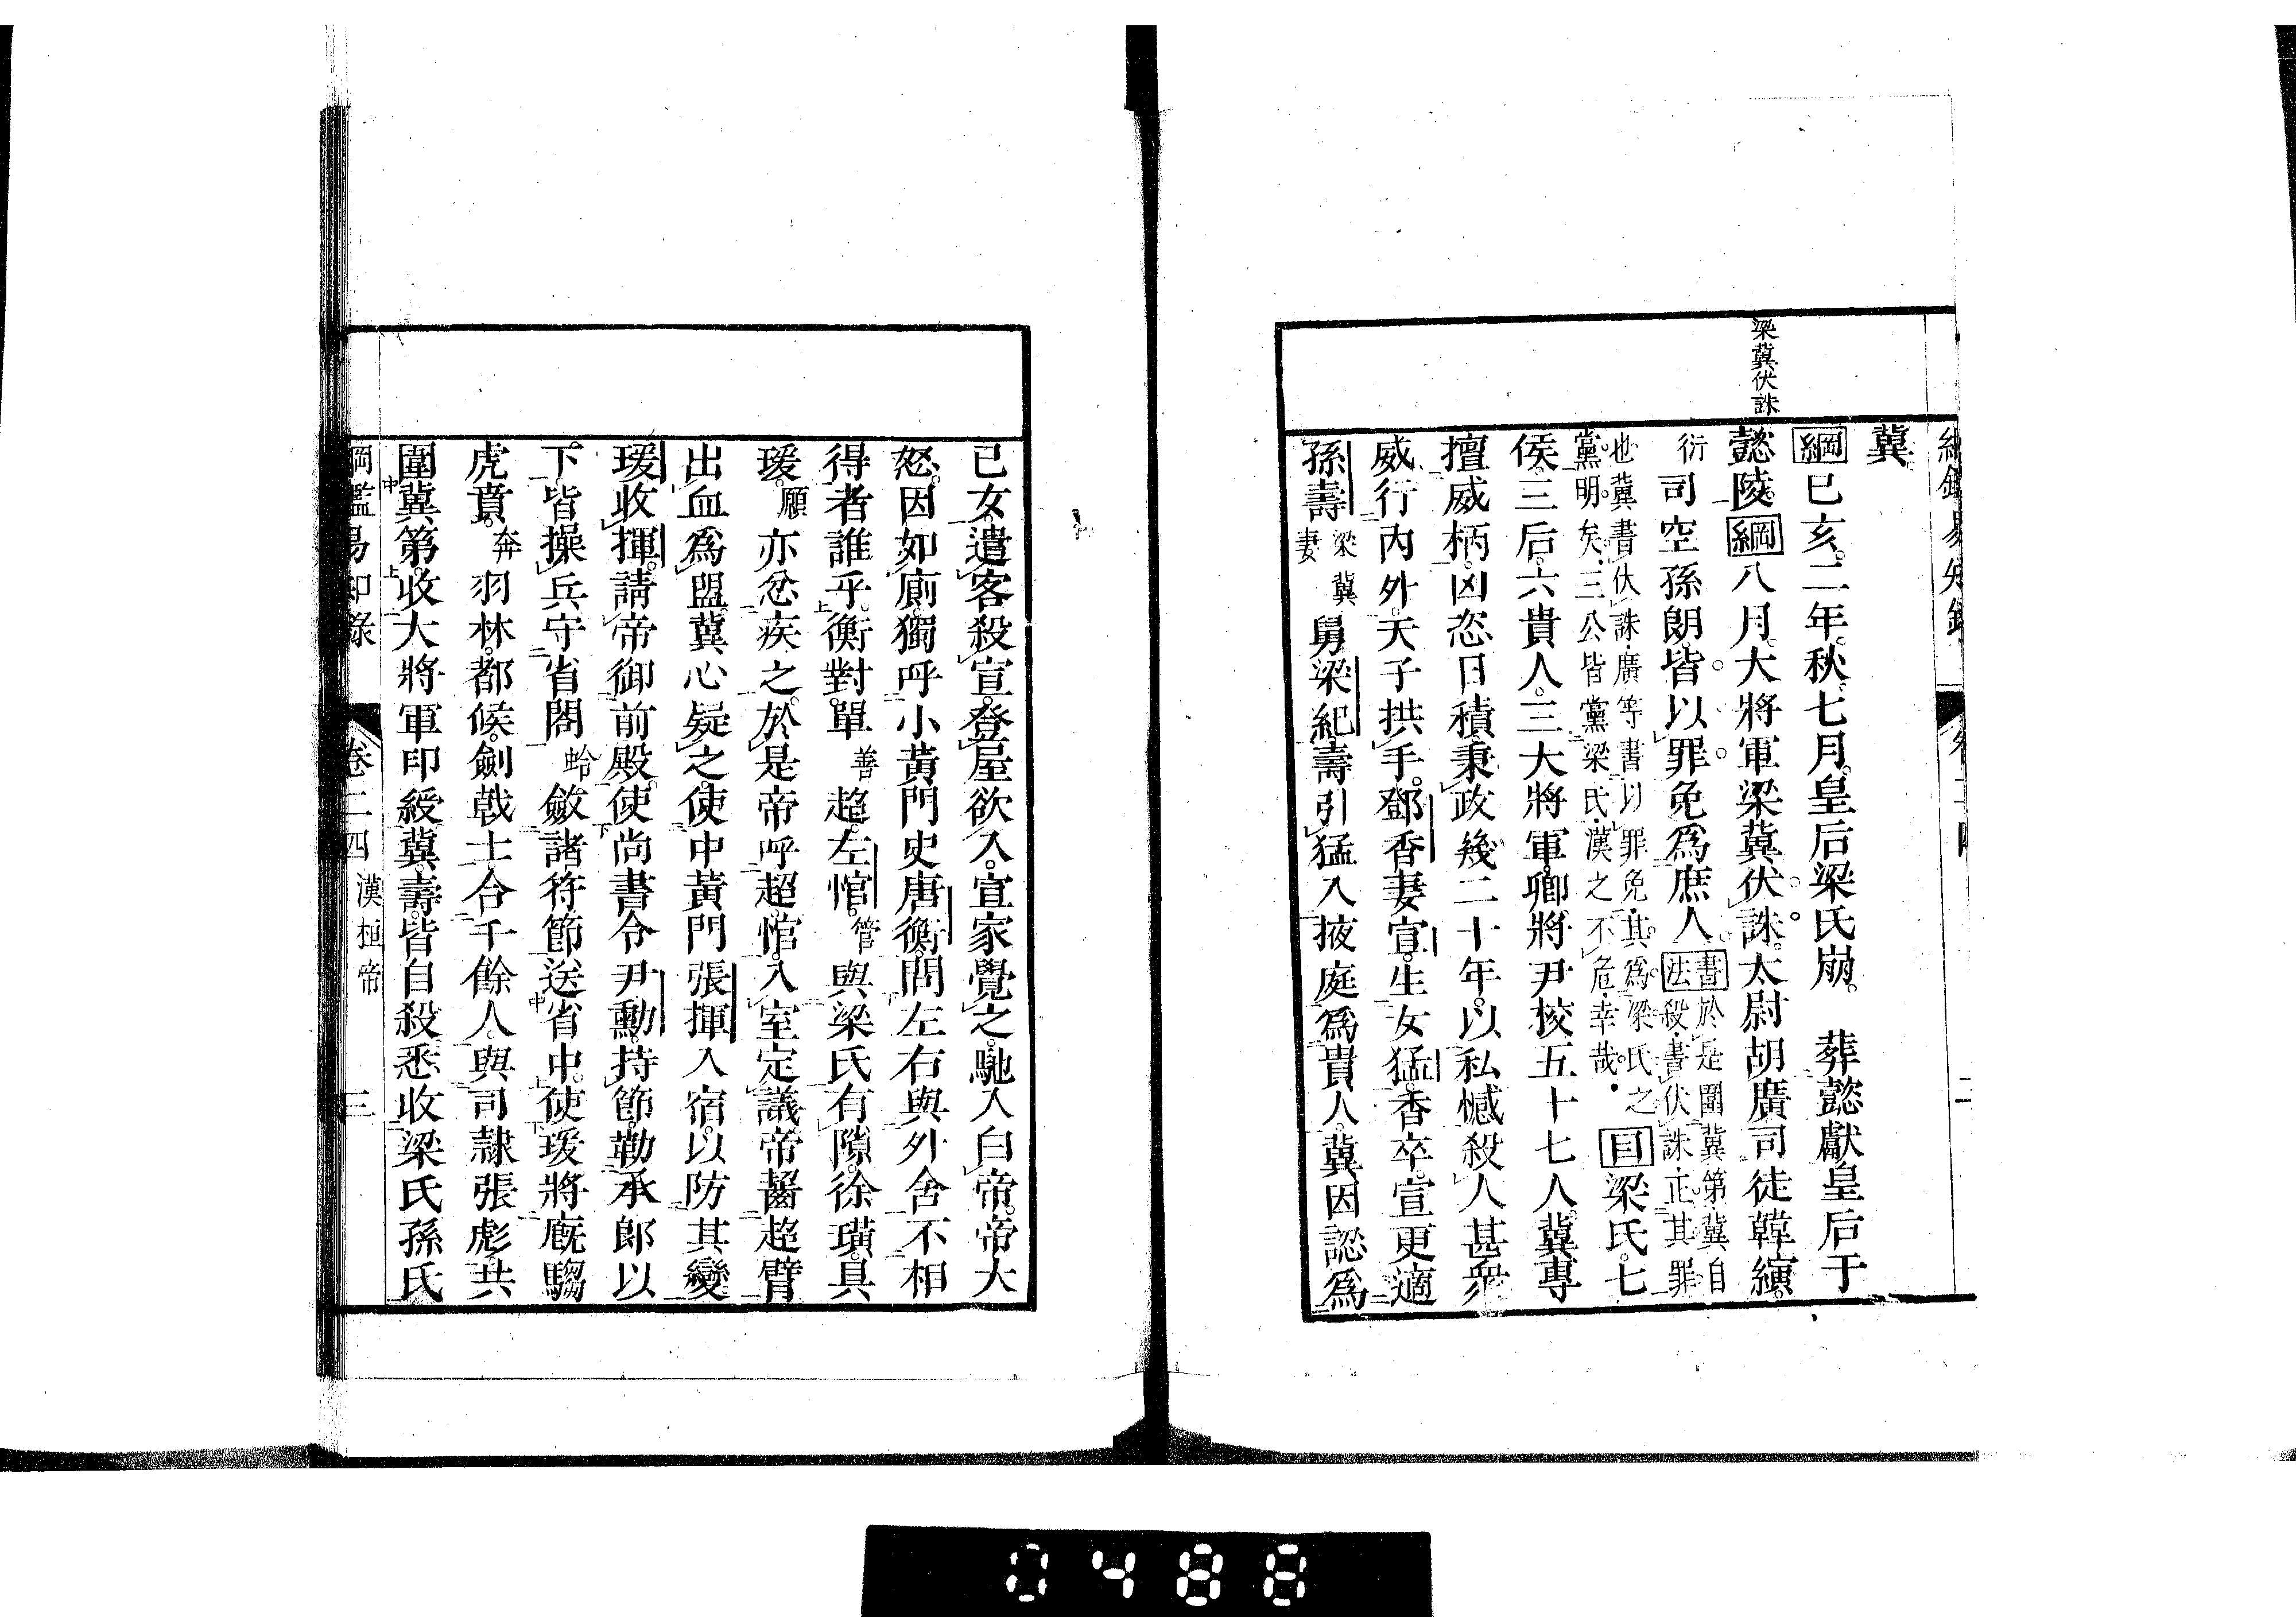 冀。
綱己亥。二年。秋。七月。皇后梁氏崩。　葬懿獻皇后于
梁冀伏誅
懿陵。綱八月。大將軍梁冀伏誅。太尉胡廣司徒韓縯。
衍司空孫朗。皆以罪免爲庶人。書法於是圍冀第。冀自殺。書伏誅。正其罪
也冀書伏誅。廣等書以罪免。其爲梁氏之
黨。明矣。三公皆黨梁氏。漢之不危。幸哉。目梁氏。七
侯。三后。六貴人。三大將軍。卿將尹校五十七人。冀專
擅威柄。凶恣日積。秉政幾二十年。以私憾殺人甚衆
威行內外。天子拱手。鄧香妻宣。生女猛。香卒。宣更適
孫壽梁冀妻舅梁紀。壽引猛入掖庭爲貴人。冀因認爲
己女。遣客殺宣。登屋欲入。宣家覺之。馳入白帝。帝大
怒。因如廁。獨呼小黃門史唐衡。問左右與外舍不相
得者誰乎。衡對單善超。左悺。管與梁氏有隙。徐璜。具
瑗。願亦忿疾之。於是帝呼超。悺。入室定議帝齧超臂
出血爲盟。冀心疑之。使中黃門張揮入宿。以防其變
瑗收揮。請帝御前殿。使尚書令尹勳。持節。勒承郎以
下。皆操兵守省閤蛤斂諸符節送省中。使瑗將廐騶
虎賁。奔羽林。都候。劍戟士合千餘人。與司隷張彪。共
圍冀第。收大將軍印綬冀。壽。皆自殺悉收梁氏孫氏
綱鑑易知錄　卷二四　漢桓帝　三
0488